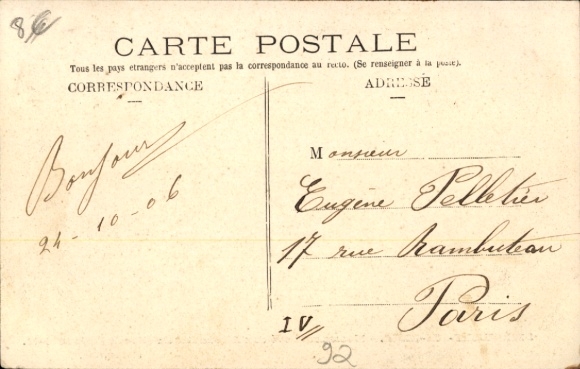 86
CARTE POSTALE
Tous les pays etrangers n'acceptent pas la correspondance au recto. (Se renseigner à la poste).
CORRESPONDANCE
ADRESSE
Bonjour
24-10-06
Monsieur
Eugène Pelletier
17 rue Rambuteau
Paris
IV
92